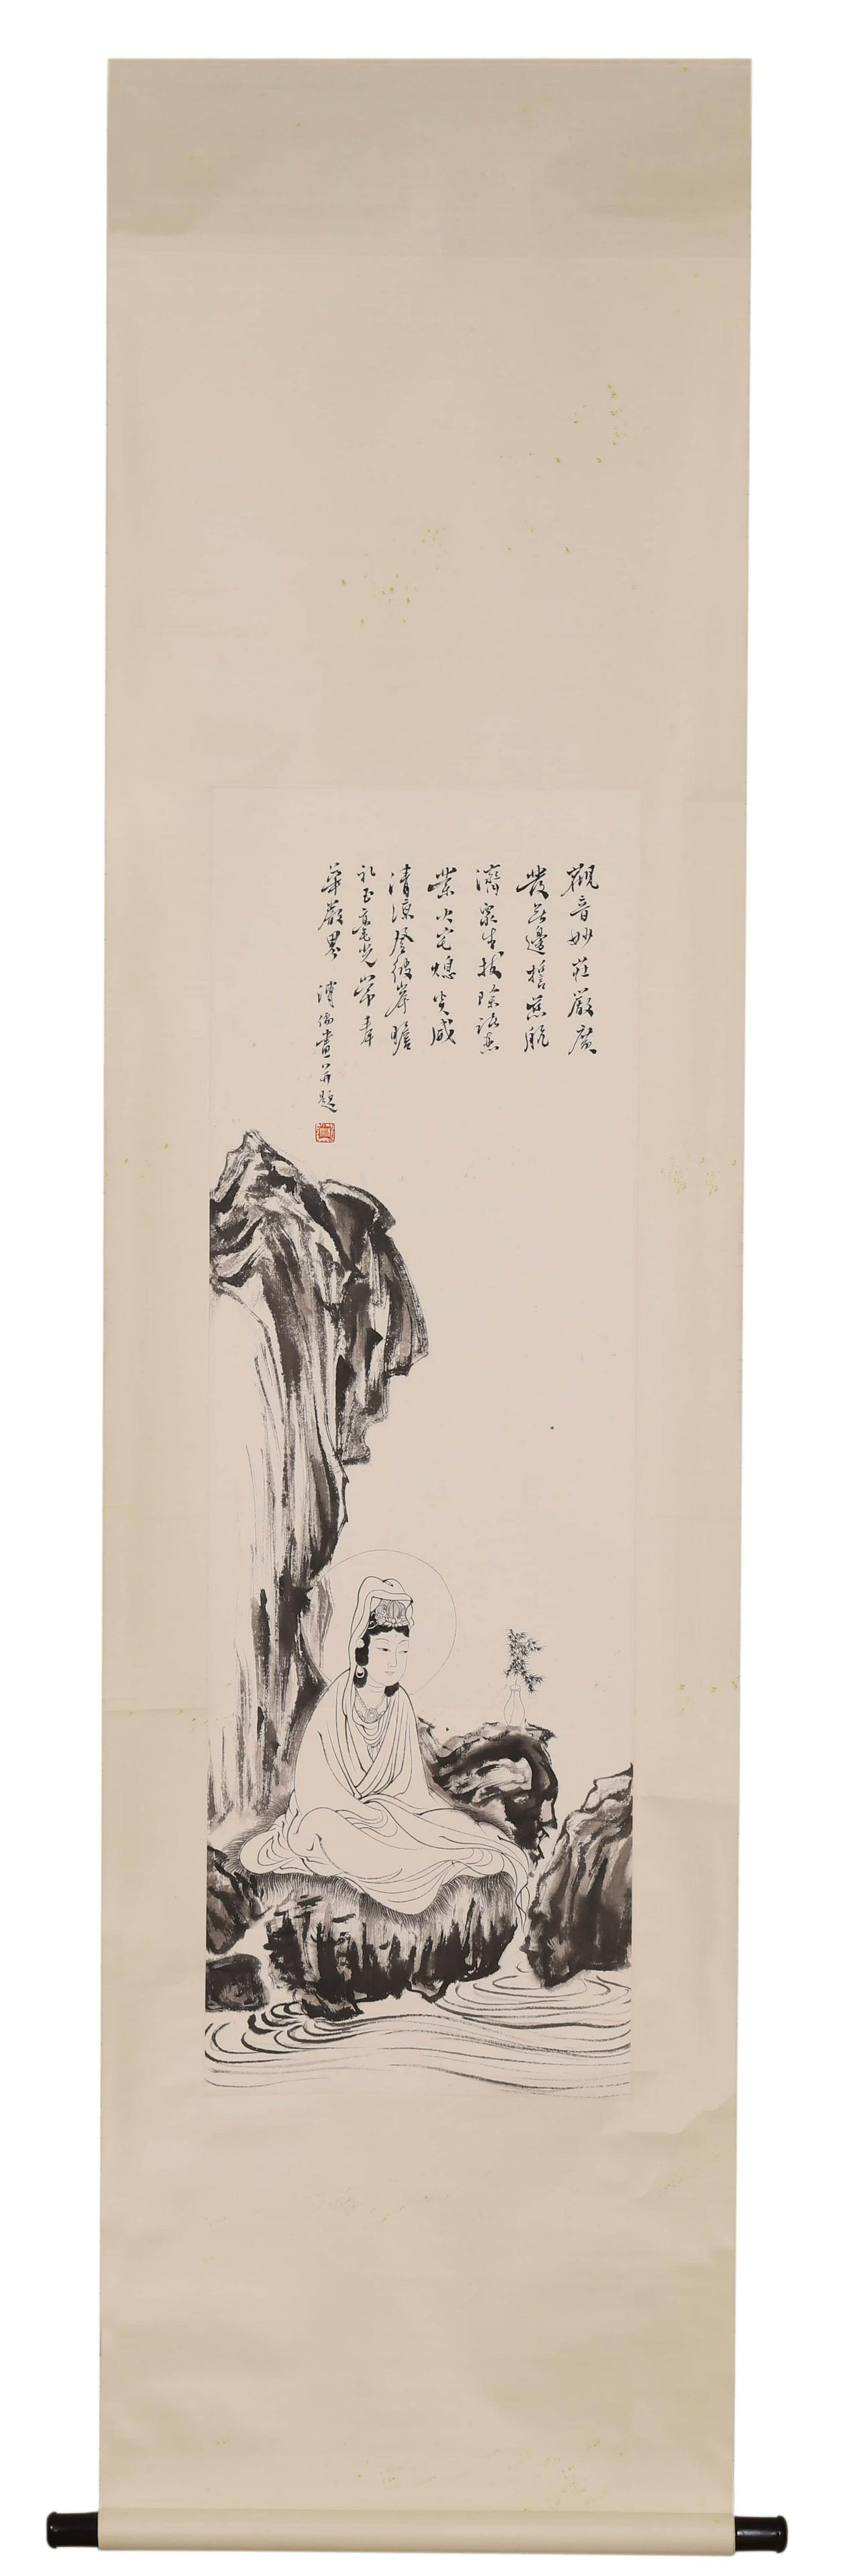 觀音妙莊嚴廣
發無邊誓慈航
濟眾生拔除諸惡
業火宅熄炎威
清涼登彼岸瞻
礼玉毫光常奉
華嚴界 溥儒畫并題